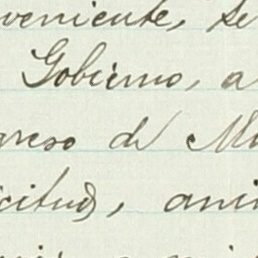 veniente, se
Gobierno, a
greso de Mé
icitud, ani